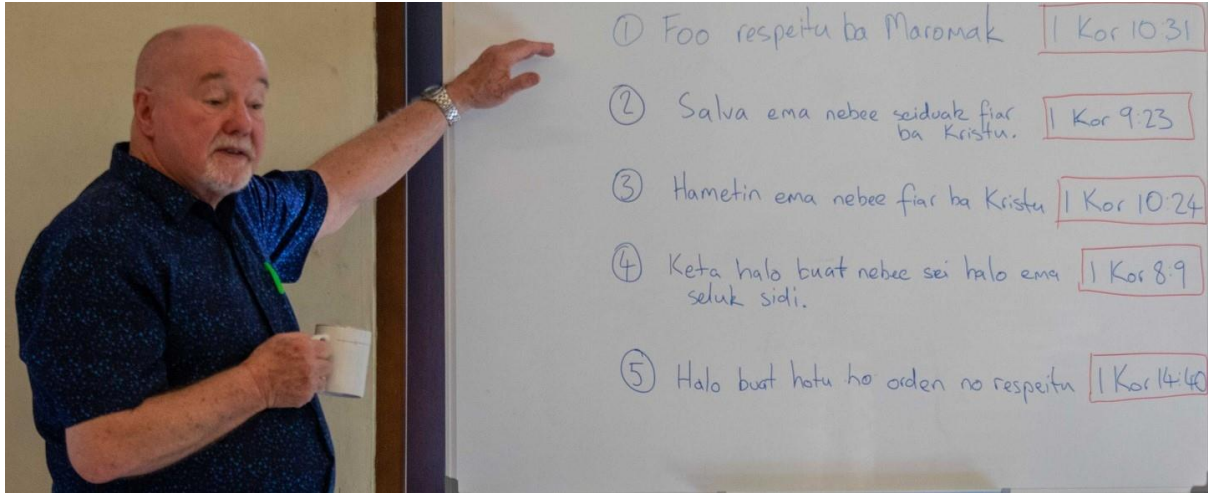 ① Foo respeitu ba Maromak 1 Kor 10:31
② Salva ema nebee seiduak fiar
ba Kristu. 1 Kor 9:23
③ Hametin ema nebee fiar ba Kristu 1 Kor 10:24
④ Keta halo buat nebee sei halo ema 1 Kor 8:9
seluk sidi.
⑤ Halo buat hotu ho orden no respeitu 1 Kor 14:40